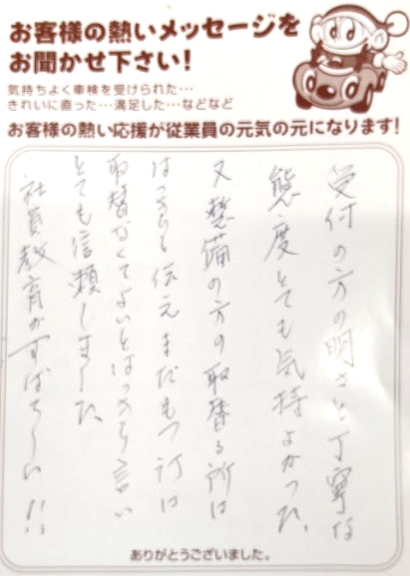 お客様の熱いメッセージを
お聞かせ下さい!
気持ちよく車検を受けられた…
きれいに直った…満足した…などなど
お客様の熱い応援が従業員の元気の元になります!
受付の方の明さと丁寧な
態度とても気持よかった。
又整備の方の取替る所は
はっきりと伝えまだもつ所は
取替なくてよいとはっきり言い
とても信頼しました
社員教育がすばらしい!!
ありがとうございました。